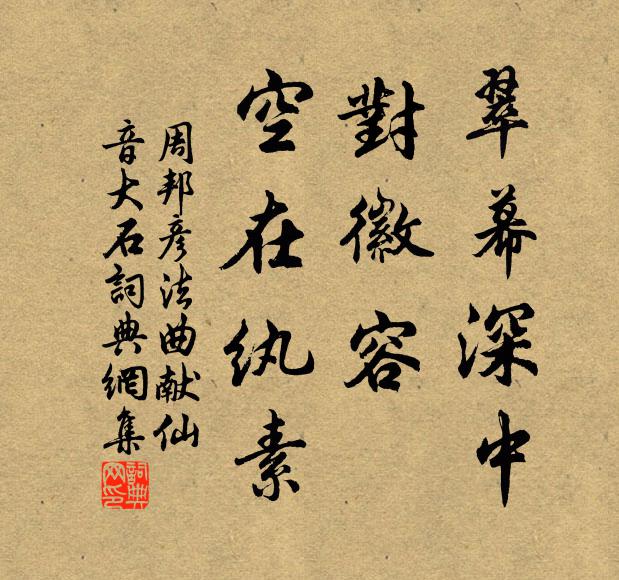 翠幕深中
對徽容
空在纨素
周邦彦法曲献仙
音大石詞典網集
詞典
网印